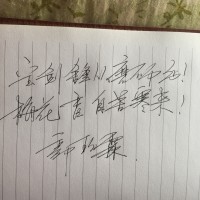 宝剑锋从磨砺出!
梅花香自苦寒来!